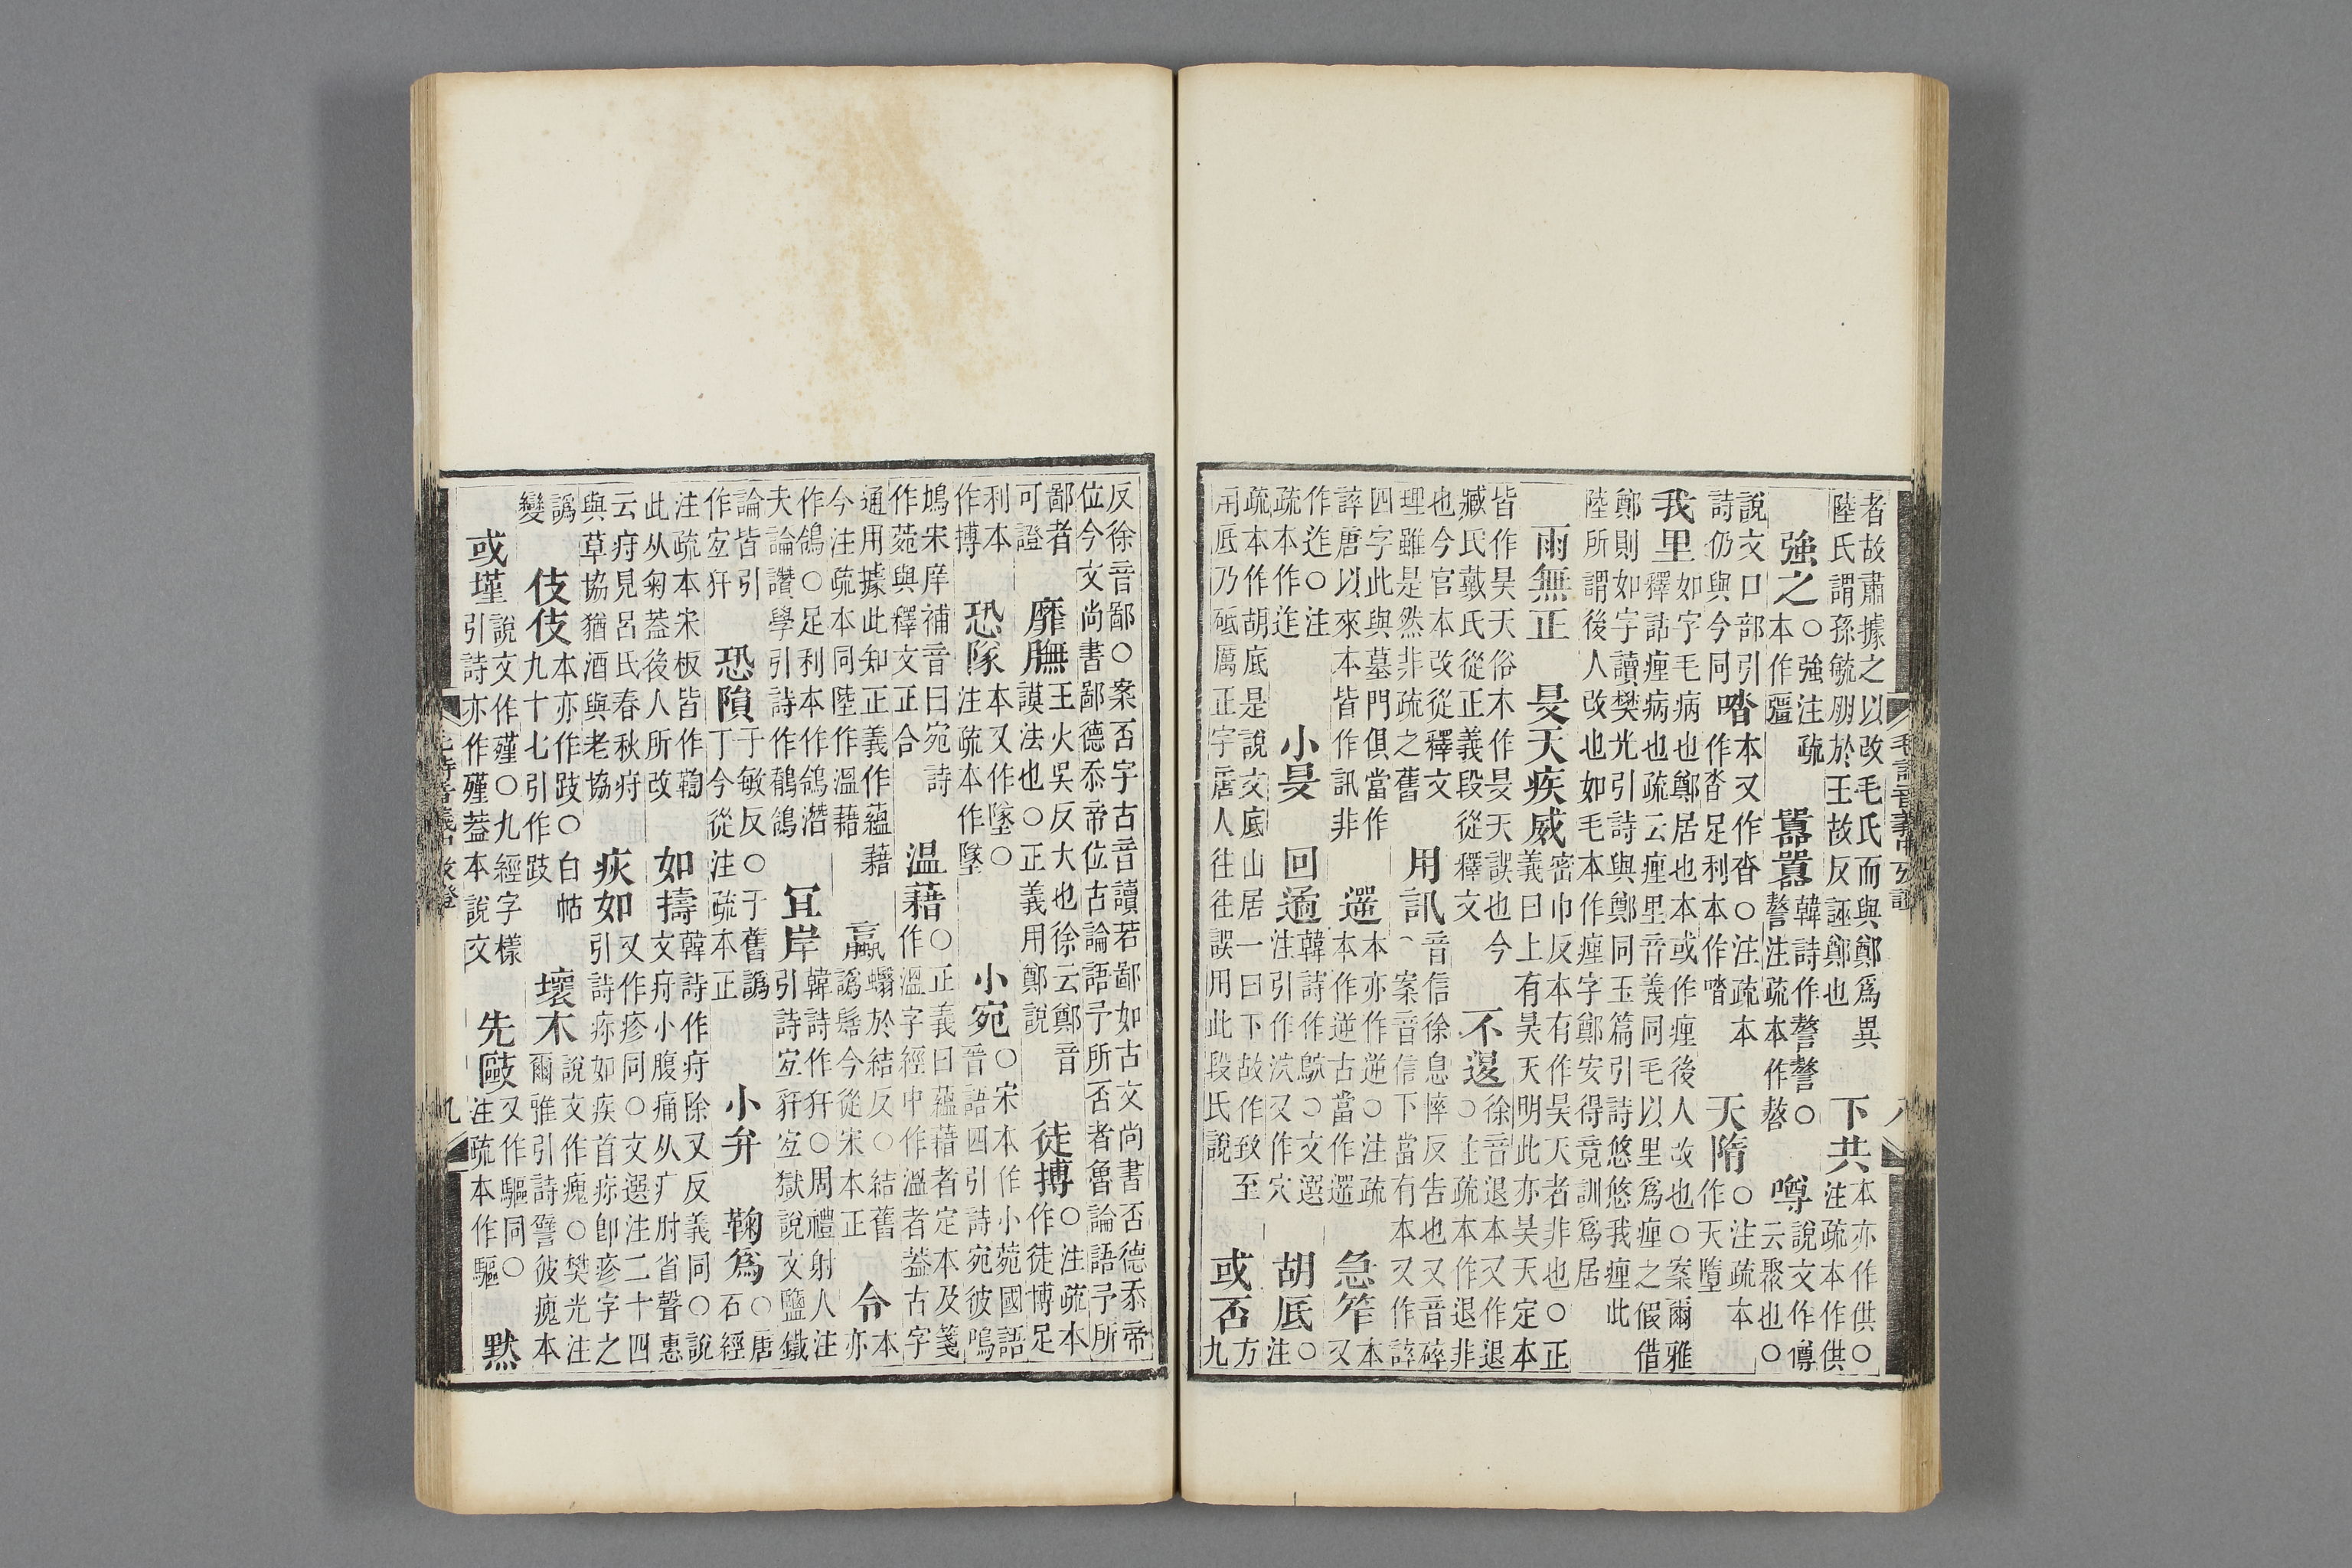 者故肅據之以改毛氏而與鄭爲異
陸氏謂孫毓朋於王故反誣鄭也
下共本亦作供○注疏本作供
強之○強注疏本作彊
嚚嚚韓詩作謷謷○謷注疏本作嗸
噂說文作僔云聚也○
說文口部引詩仍與今同
喈本又作沓○注疏本作沓足利本作噆
天隋○注疏本作天墮
我里如字毛病也鄭居也本或作㾖後人改也○案爾雅
釋詁㾖病也疏云㾖里音義同毛以里爲㾖之假借
鄭則如字讀樊光引詩與鄭同玉篇引詩悠悠我㾖此
陸所謂後人改也如毛本作㾖字鄭安得竟訓爲居
雨無正
旻天疾威密巾反本有作昊天者非也○正
義曰上有昊天明此亦昊天定本
皆作昊天俗本作旻天誤也今
臧氏戴氏從正義段從釋文
不退徐音退本又作退
○注疏本作退非
也今官本改從釋文
理雖是然非疏之舊
用訊音信徐息悴反告也又音碎
案音信下當有本又作誶
四字此與墓門俱當作
誶唐以來本皆作訊非
遻本亦作逆○注疏
本作逆古當作遻
急笮本又
作迮○注
疏本作迮
小旻
回遹韓詩作鴥○文選
注引作泬又作穴
胡底○注
疏本作胡底是說文底山居一曰下故作致至
用底乃砥厲正字唐人往往誤用此段氏說
或否方九
反徐音鄙○案否字古音讀若鄙如古文尚書否德忝帝
位今文尚書鄙德忝帝位古論語予所否者魯論語予所
鄙者可證
靡膴王火吳反大也徐云鄭音
謨法也○正義用鄭說
徒搏○注疏本
作徒博足
利本作搏
恐隊本又作墜○
注疏本作墜
小宛○宋本作小菀國語
晉語四引詩宛彼鳴
鳩宋庠補音曰宛詩
作菀與釋文正合
温藉○正義曰蘊藉者定本及箋
作溫字經中作溫者蓋古字
通用據此知正義作蘊藉
今注疏本同陸作溫藉
蠃蠮於結反○結舊
譌髻今從宋本正
令本亦
作鴒○足利本作鴒潛
夫論讚學引詩作鶺鴒
冝岸韓詩作犴○周禮射人注
引詩宜豻宜獄說文鹽鐵
論皆引
作宜犴
恐隕于敏反○于舊譌
丁今從注疏本正
小弁
鞫爲○唐
石經
注疏本宋板皆作鞫
此从菊蓋後人所改
如擣韓詩作疛除又反義同○說
文疛小腹痛从疒肘省聲惠
云疛見呂氏春秋疛
與草協猶酒與老協
疢如又作疹同○文選注二十四
引詩疢如疾首疢卽疹字之
譌
變
伎伎本亦作跂○白帖
九十七引作跂
壞木說文作瘣○樊光注
爾雅引詩譬彼瘣本
或墐說文作殣○九經字樣
引詩亦作殣蓋本說文
先敺又作驅同○
注疏本作驅
默
毛詩音義中攷證
八
九